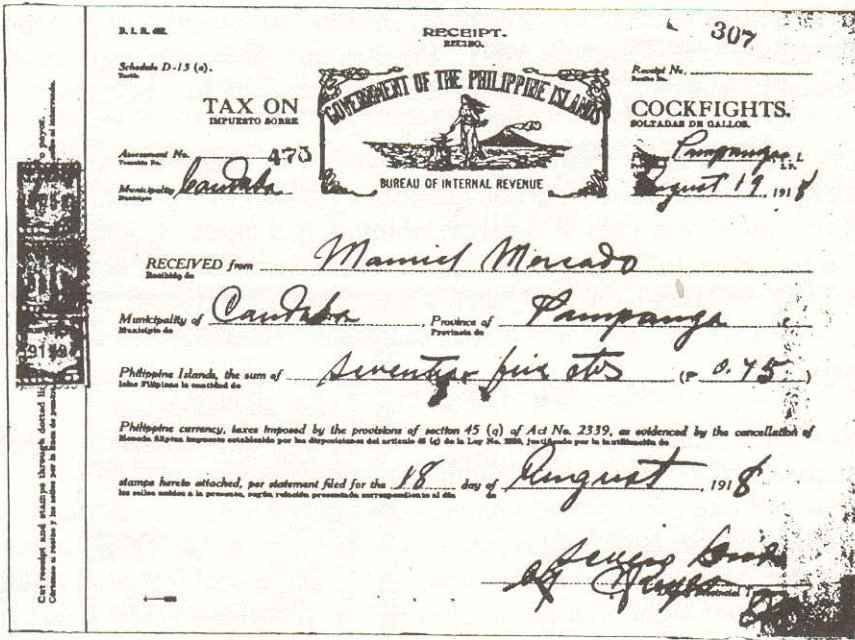 B. I. R.
RECEIPT.
RECIBO.
307
Schedule D-13 (a).
Receipt No.
TAX ON
IMPUESTO SOBRE
GOVERNMENT OF THE PHILIPPINE ISLANDS
BUREAU OF INTERNAL REVENUE
COCKFIGHTS.
SOLTADAS DE GALLOS.
Assessment No. 475
Pampanga
Municipality Candaba
August 19, 1918
RECEIVED from Manuel Mercado
Recibido de
Municipality of Candaba Province of Pampanga
Municipio de Provincia de
Philippine Islands, the sum of seventy five cts (₱ 0.75)
Islas Filipinas la cantidad de
Philippine currency, taxes imposed by the provisions of section 45 (q) of Act No. 2339, as evidenced by the cancellation of
Moneda filipina impuesto establecido por las disposiciones del artículo 45 (q) de la Ley No. 2339, justificado por la inutilización de
stamps hereto attached, per statement filed for the 18 day of August 1918
los sellos unidos a la presente, según relación presentada correspondiente al día de
Provincial
Cut receipt and stamps through dotted payor.
Córtense el recibo y los sellos por la línea de al interesado.